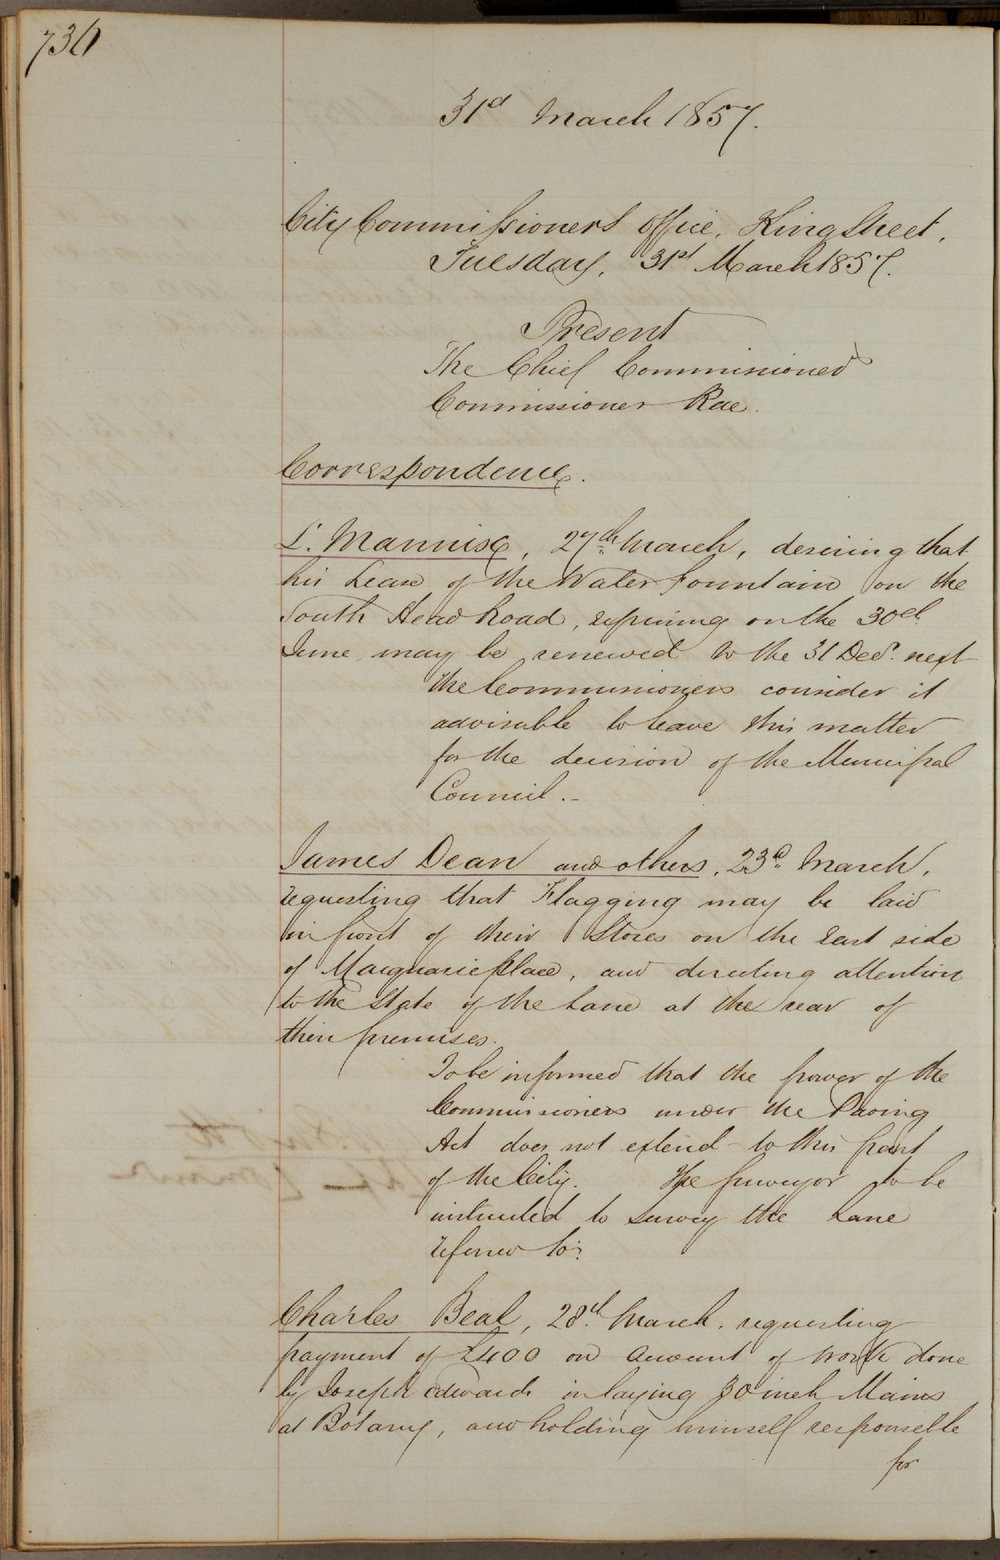 736
31st March 1857.
City Commissioners Office, King Street,
Tuesday, 31st March 1857.
Present
The Chief Commissioner
Commissioner Rae.
Correspondence.
L. Mannix, 27th March, desiring that
his Lease of the Water Fountain on the
South Head Road, expiring on the 30th
June, may be renewed to the 31 Decr. next
the Commissioners consider it
advisable to leave this matter
for the decision of the Municipal
Council.-
James Dean and others, 23d March,
requesting that Flagging may be laid
in front of their Stores on the East side
of Macquarie place, and directing attention
to the State of the Lane at the rear of
their premises.
To be informed that the power of the
Commissioners under the Paving
Act does not extend to this part
of the City. The Surveyor to be
instructed to survey the Lane
referred to.
Charles Beal, 28th March, requesting
payment of £400 on account of work done
by Joseph Edwards in laying 30 inch Mains
at Botany, and holding himself responsible
for